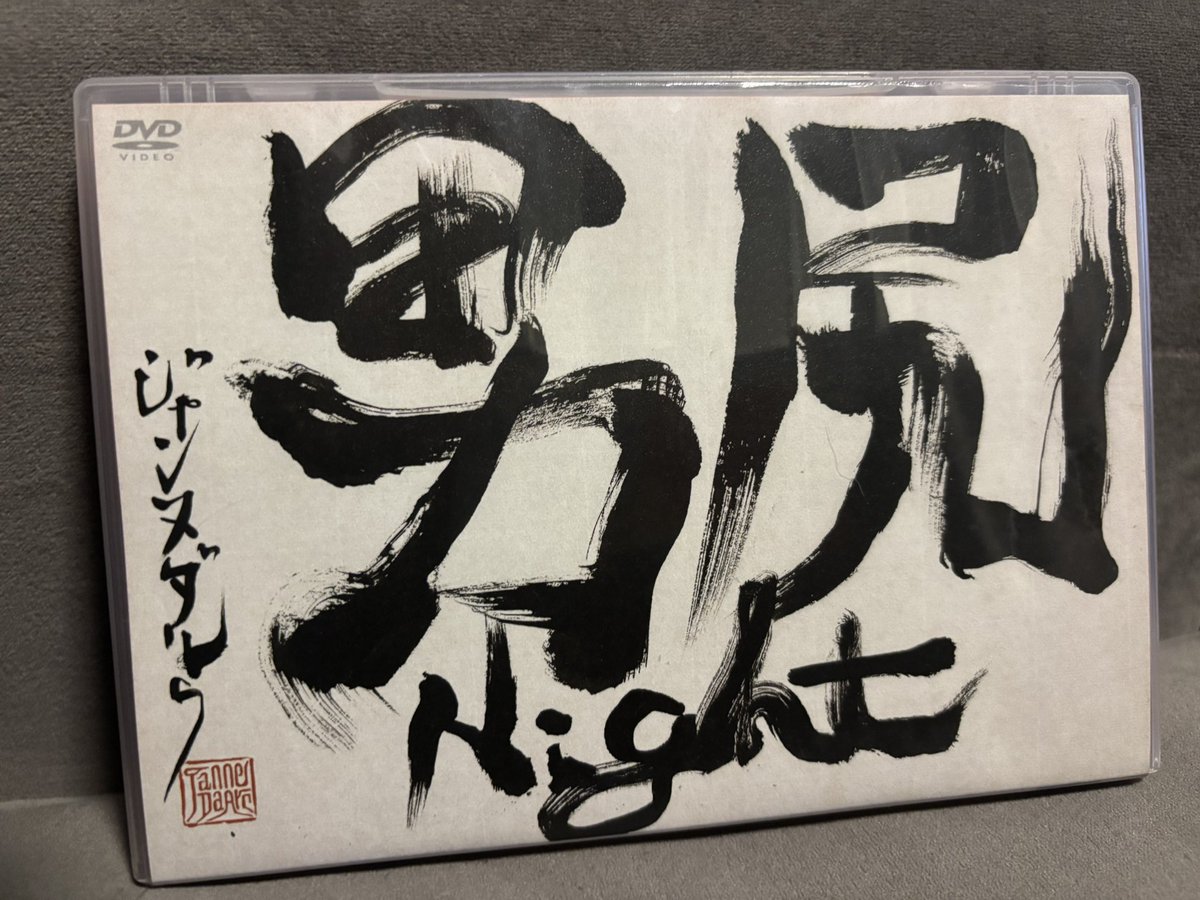 DVD
VIDEO
男尻
Night
ジャンヌダルク
Janne
DaArc